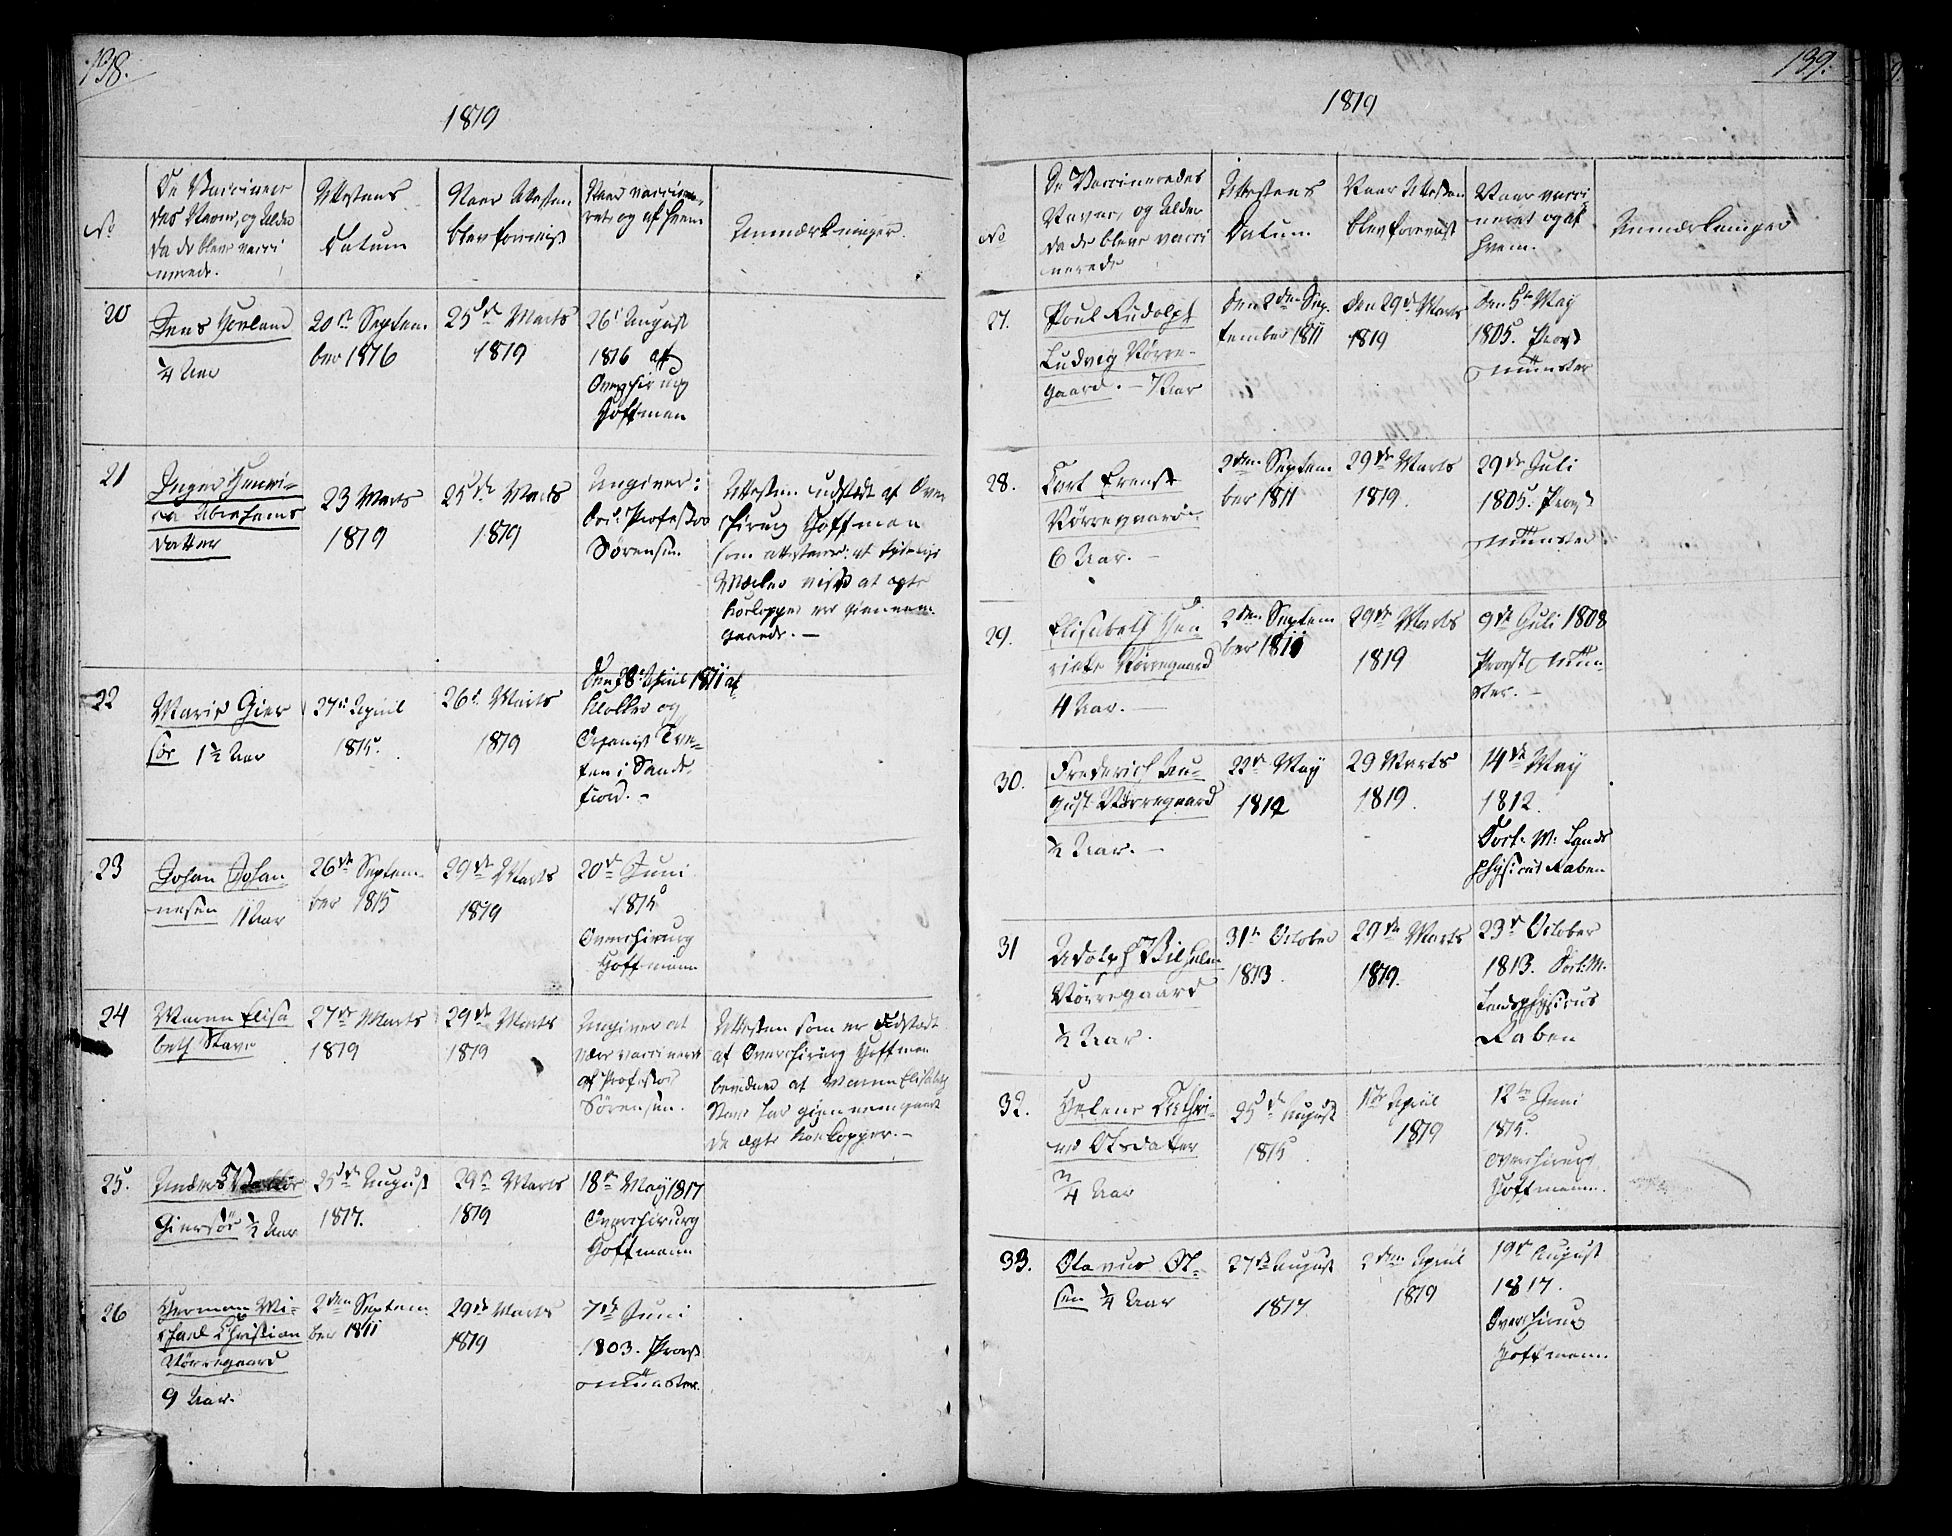 138.
1819
No
De Vaccinere
des Navne, og Alder
da de bleve vacci
nerede.
Attestens
Datum
Naar Attesten
blev foreviist
Naar vaccine-
ret, og af hvem
Anmærkninger.
20
Jens
1/4 Aar
20de Septem
ber 1816
25de Marts
1819
26de August
1816 af
Overchirurg
Hoffman
21
Inger Henri-
ca Abrahams
datter
23 Marts
1819
25de Marts
1819
Angiver:
Professor
Sørensen
Attesten udstædt af Over
chirurg Hoffman
som attesterer: at tydelige
Mærker viise at ægte
Koekopper ere gienem-
gaaede. —
22
Maria Gier
søe 1 1/2 Aar
27de April
1815.
26de Marts
1819
Den 8de April 1811 af
Klokker og
Organist Tve-
ten i Sande-
fiord. —
23
Johan Johan-
nesen 11 Aar
26de Septem-
ber 1815
29de Marts
1819
20de Juni
1815
Overchirurg
Hoffmann
24
Maren Elisa
beth Stave
27de Marts
1819
29de Marts
1819
Angiver at
være vaccineret
af Professor
Sørensen.
Attesten som er udstædt
af Overchirurg Hoffman
bevidner at Maren Elisabeth
Stave har gjennemgaaet
de ægte Koekopper. —
25.
Anders
Giersöe 1/2 Aar
25de August
1817.
29de Marts
1819
18de May 1817
Overchirurg
Hoffmann
26
Herman Mi-
chael Christian
Nörregaard
9 Aar.
2den Septem
ber 1811
29de Marts
1819
7de Juni
1803. Provst
Münster.
139.
1819
No
De Vaccineredes
Navne, og Alder
da de bleve vacci
nerede
Attestens
Datum
Naar Attesten
blev foreviist
Naar vacci-
neret og af
hvem.
Anmærkninger
27.
Poul Rudolph
Ludvig Nörre-
gaard. — 7 Aar
den 2den Sep
tember 1811
den 29de Marts
1819
den 5te May
1805. Provst
Münster
28.
Carl Ernst
Nörregaard.
6 Aar. —
2den Septem
ber 1811
29de Marts
1819.
29de Juli
1805. Provst
Münster
29.
Elisabeth Hen
ricke Nörregaard
4 Aar. —
2den Septem
ber 1811
29de Marts
1819
9de Juli 1808
Provst Mün-
ster. —
30.
Frederich Au-
gust Nörregaard
1/2 Aar. —
22de May
1812
29 Marts
1819.
14de May
1812.
Doct. M. Lands
physicus Raben
31
Adolph Vilhelm
Nörregaard
1/2 Aar.
31te October
1813.
29de Marts
1819.
23de October
1813. Doct: M.
Landsphysicus
Raben
32.
Helene Cathri-
ne Olsdatter
2/4 Aar
25de August
1815
1ste April
1819
12te Juni
1815.
Overchirurg
Hoffmann.
33.
Otavus Ol-
sen 1/4 Aar
27de August
1817
2den April
1819
19de August
1817.
Overchirurg
Hoffmann.